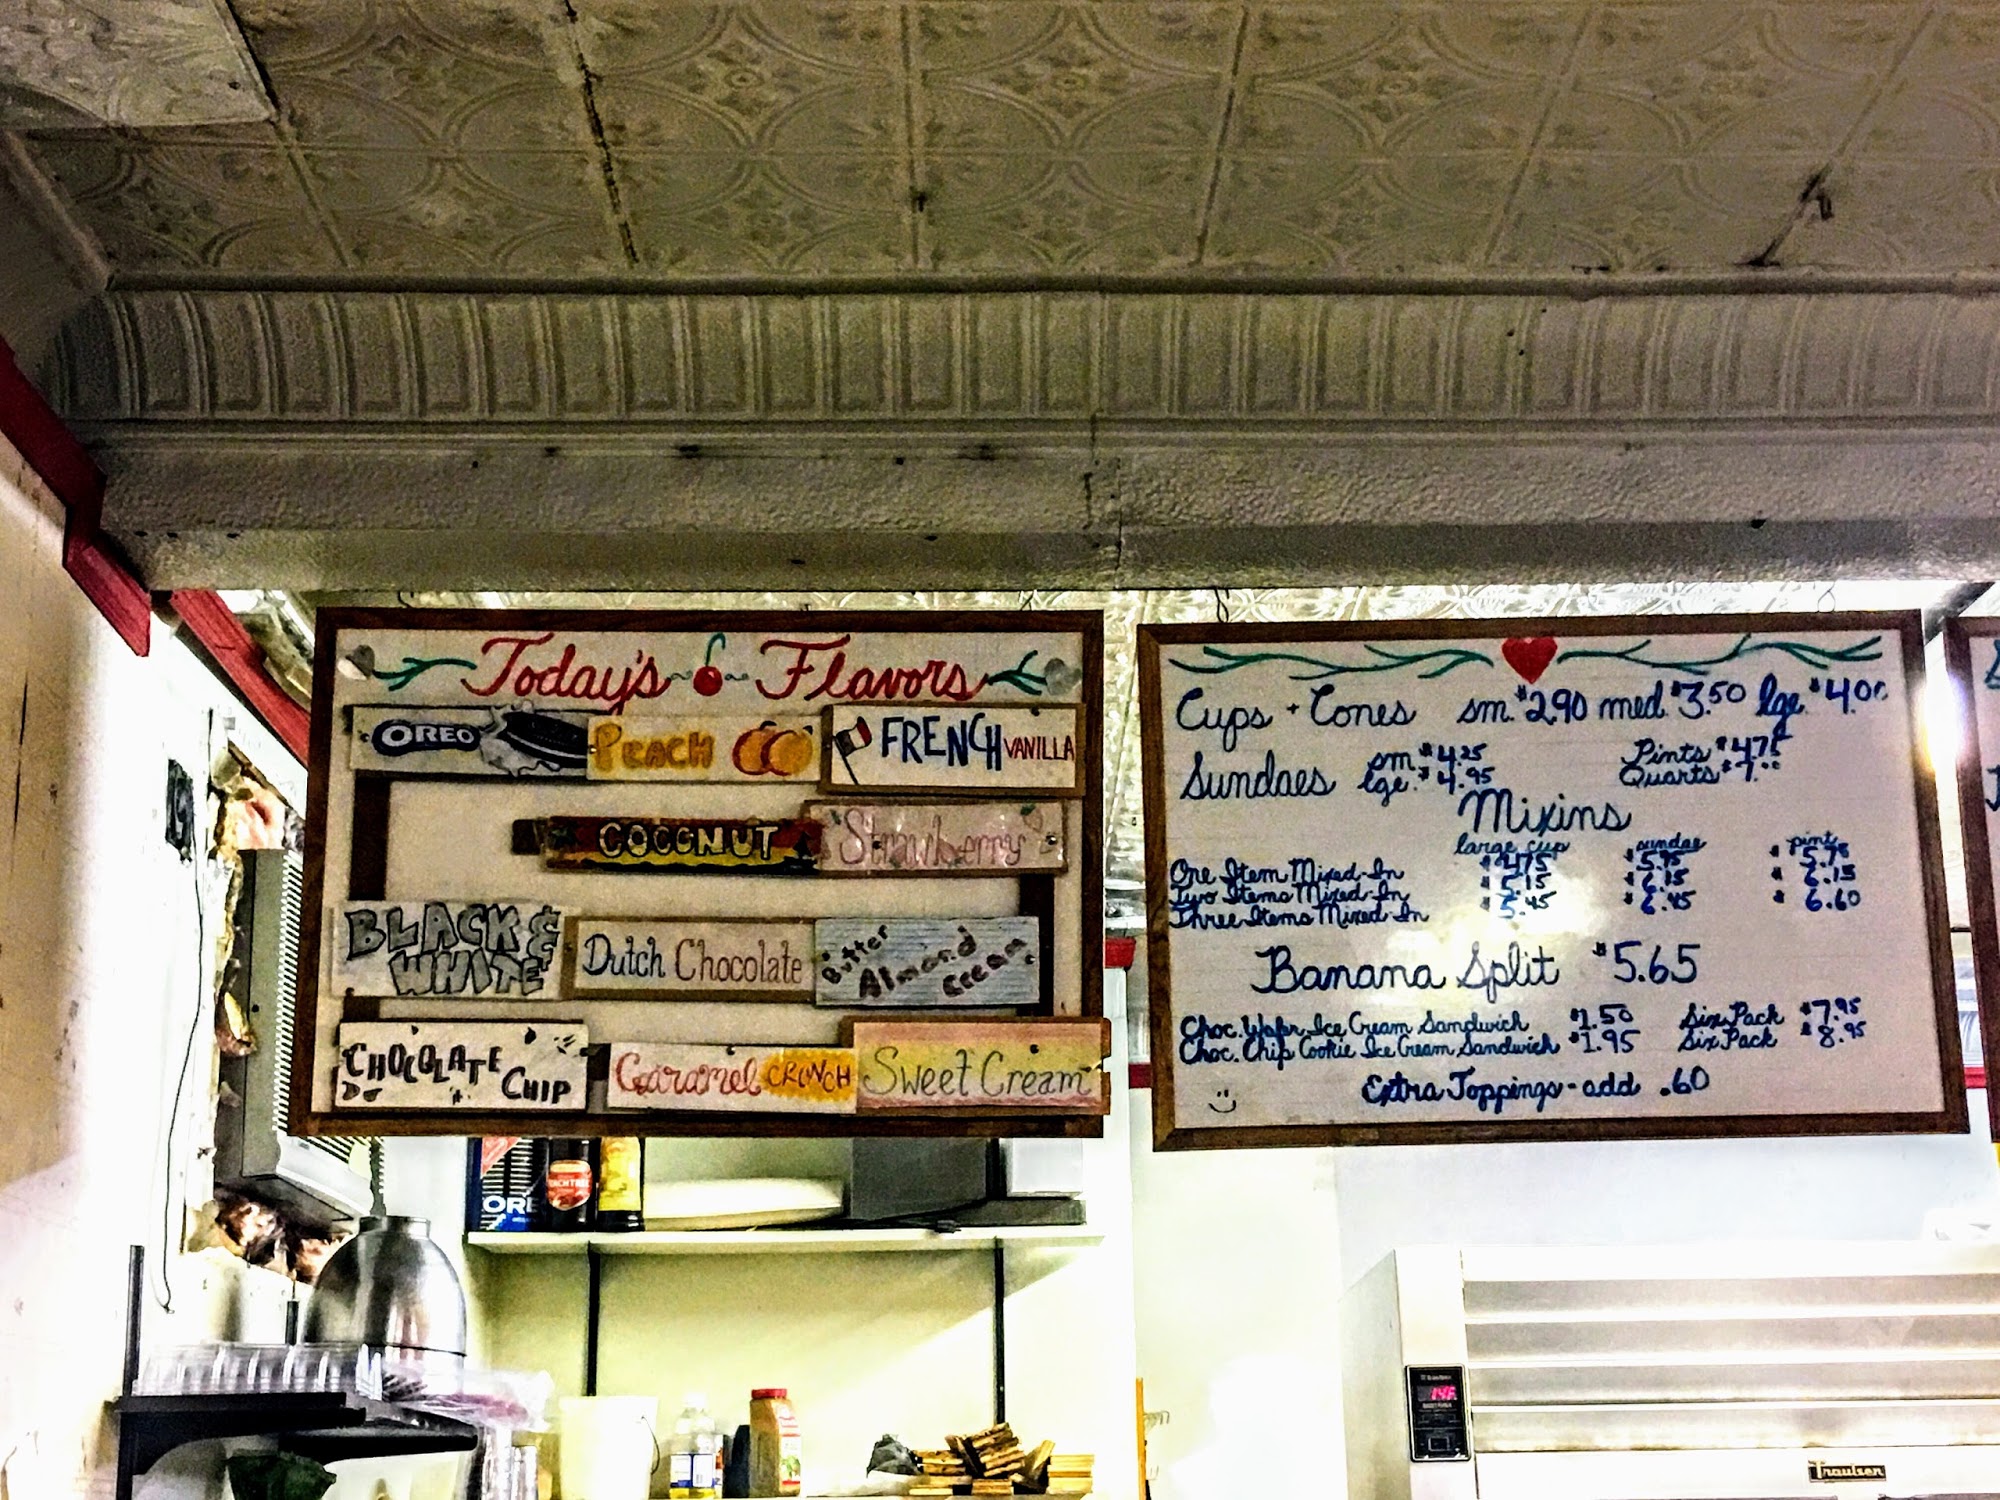 Today's Flavors
OREO
PEACH
FRENCH VANILLA
COCONUT
Strawberry
BLACK &
WHITE
Dutch Chocolate
Butter
Almond
Cream
CHOCOLATE
CHIP
Caramel CRUNCH
Sweet Cream
Cups + Cones sm. $2.90 med. $3.50 lge. $4.00
Sundaes sm $4.25
lge. $4.95
Pints $4.75
Quarts $7.00
Mixins
large cup sundae pint
One Item Mixed-In $4.75 $5.75 $5.75
Two Items Mixed-In $5.15 $6.15 $6.15
Three Items Mixed-In $5.45 $6.45 $6.60
Banana Split $5.65
Choc. Wafr Ice Cream Sandwich $1.50 Six Pack $7.95
Choc. Chip Cookie Ice Cream Sandwich $1.95 Six Pack $8.95
Extra Toppings - add .60
ORE
Traulsen